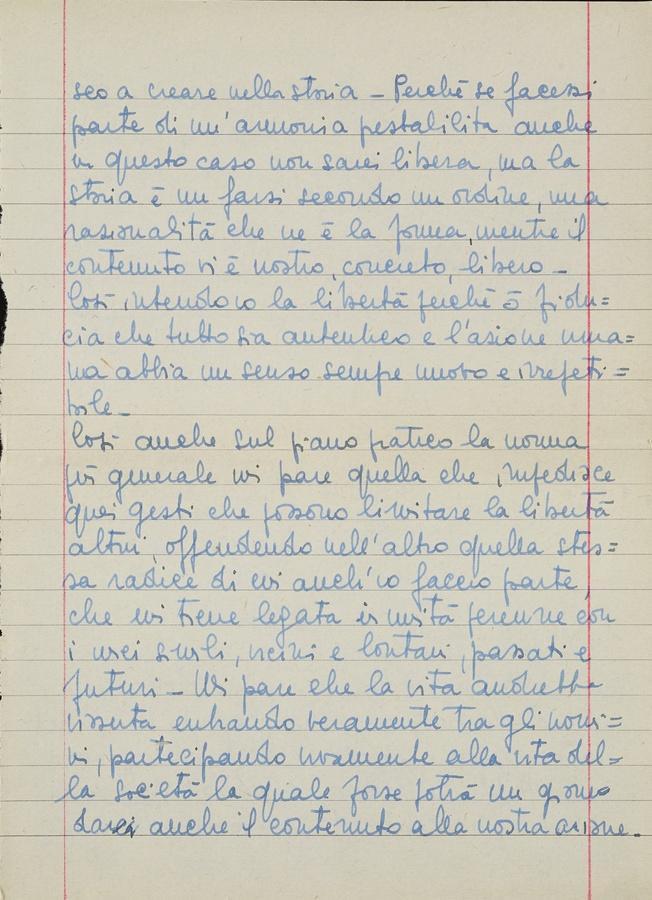 sco a creare nella storia - Perché se facessi
parte di un'armonia prestabilita anche
in questo caso non sarei libera, ma la
storia è un farsi secondo un ordine, una
razionalità che ne è la forma, mentre il
contenuto vi è nostro, concreto, libero -
Così intendo io la libertà perché ò fidu=
cia che tutto sia autentico e l'azione uma=
na abbia un senso sempre nuovo e irrepeti=
bile -
Così anche sul piano pratico la norma
più generale mi pare quella che impedisce
quei gesti che possono limitare la libertà
altrui, offendendo nell'altro quella stes=
sa radice di cui anch'io faccio parte,
che mi tiene legata in unità perenne con
i miei simili, vicini e lontani, passati e
futuri - Mi pare che la vita andrebbe
vissuta entrando veramente tra gli uomi=
ni, partecipando vivamente alla vita del=
la società la quale forse potrà un giorno
darci anche il contenuto alla nostra azione.